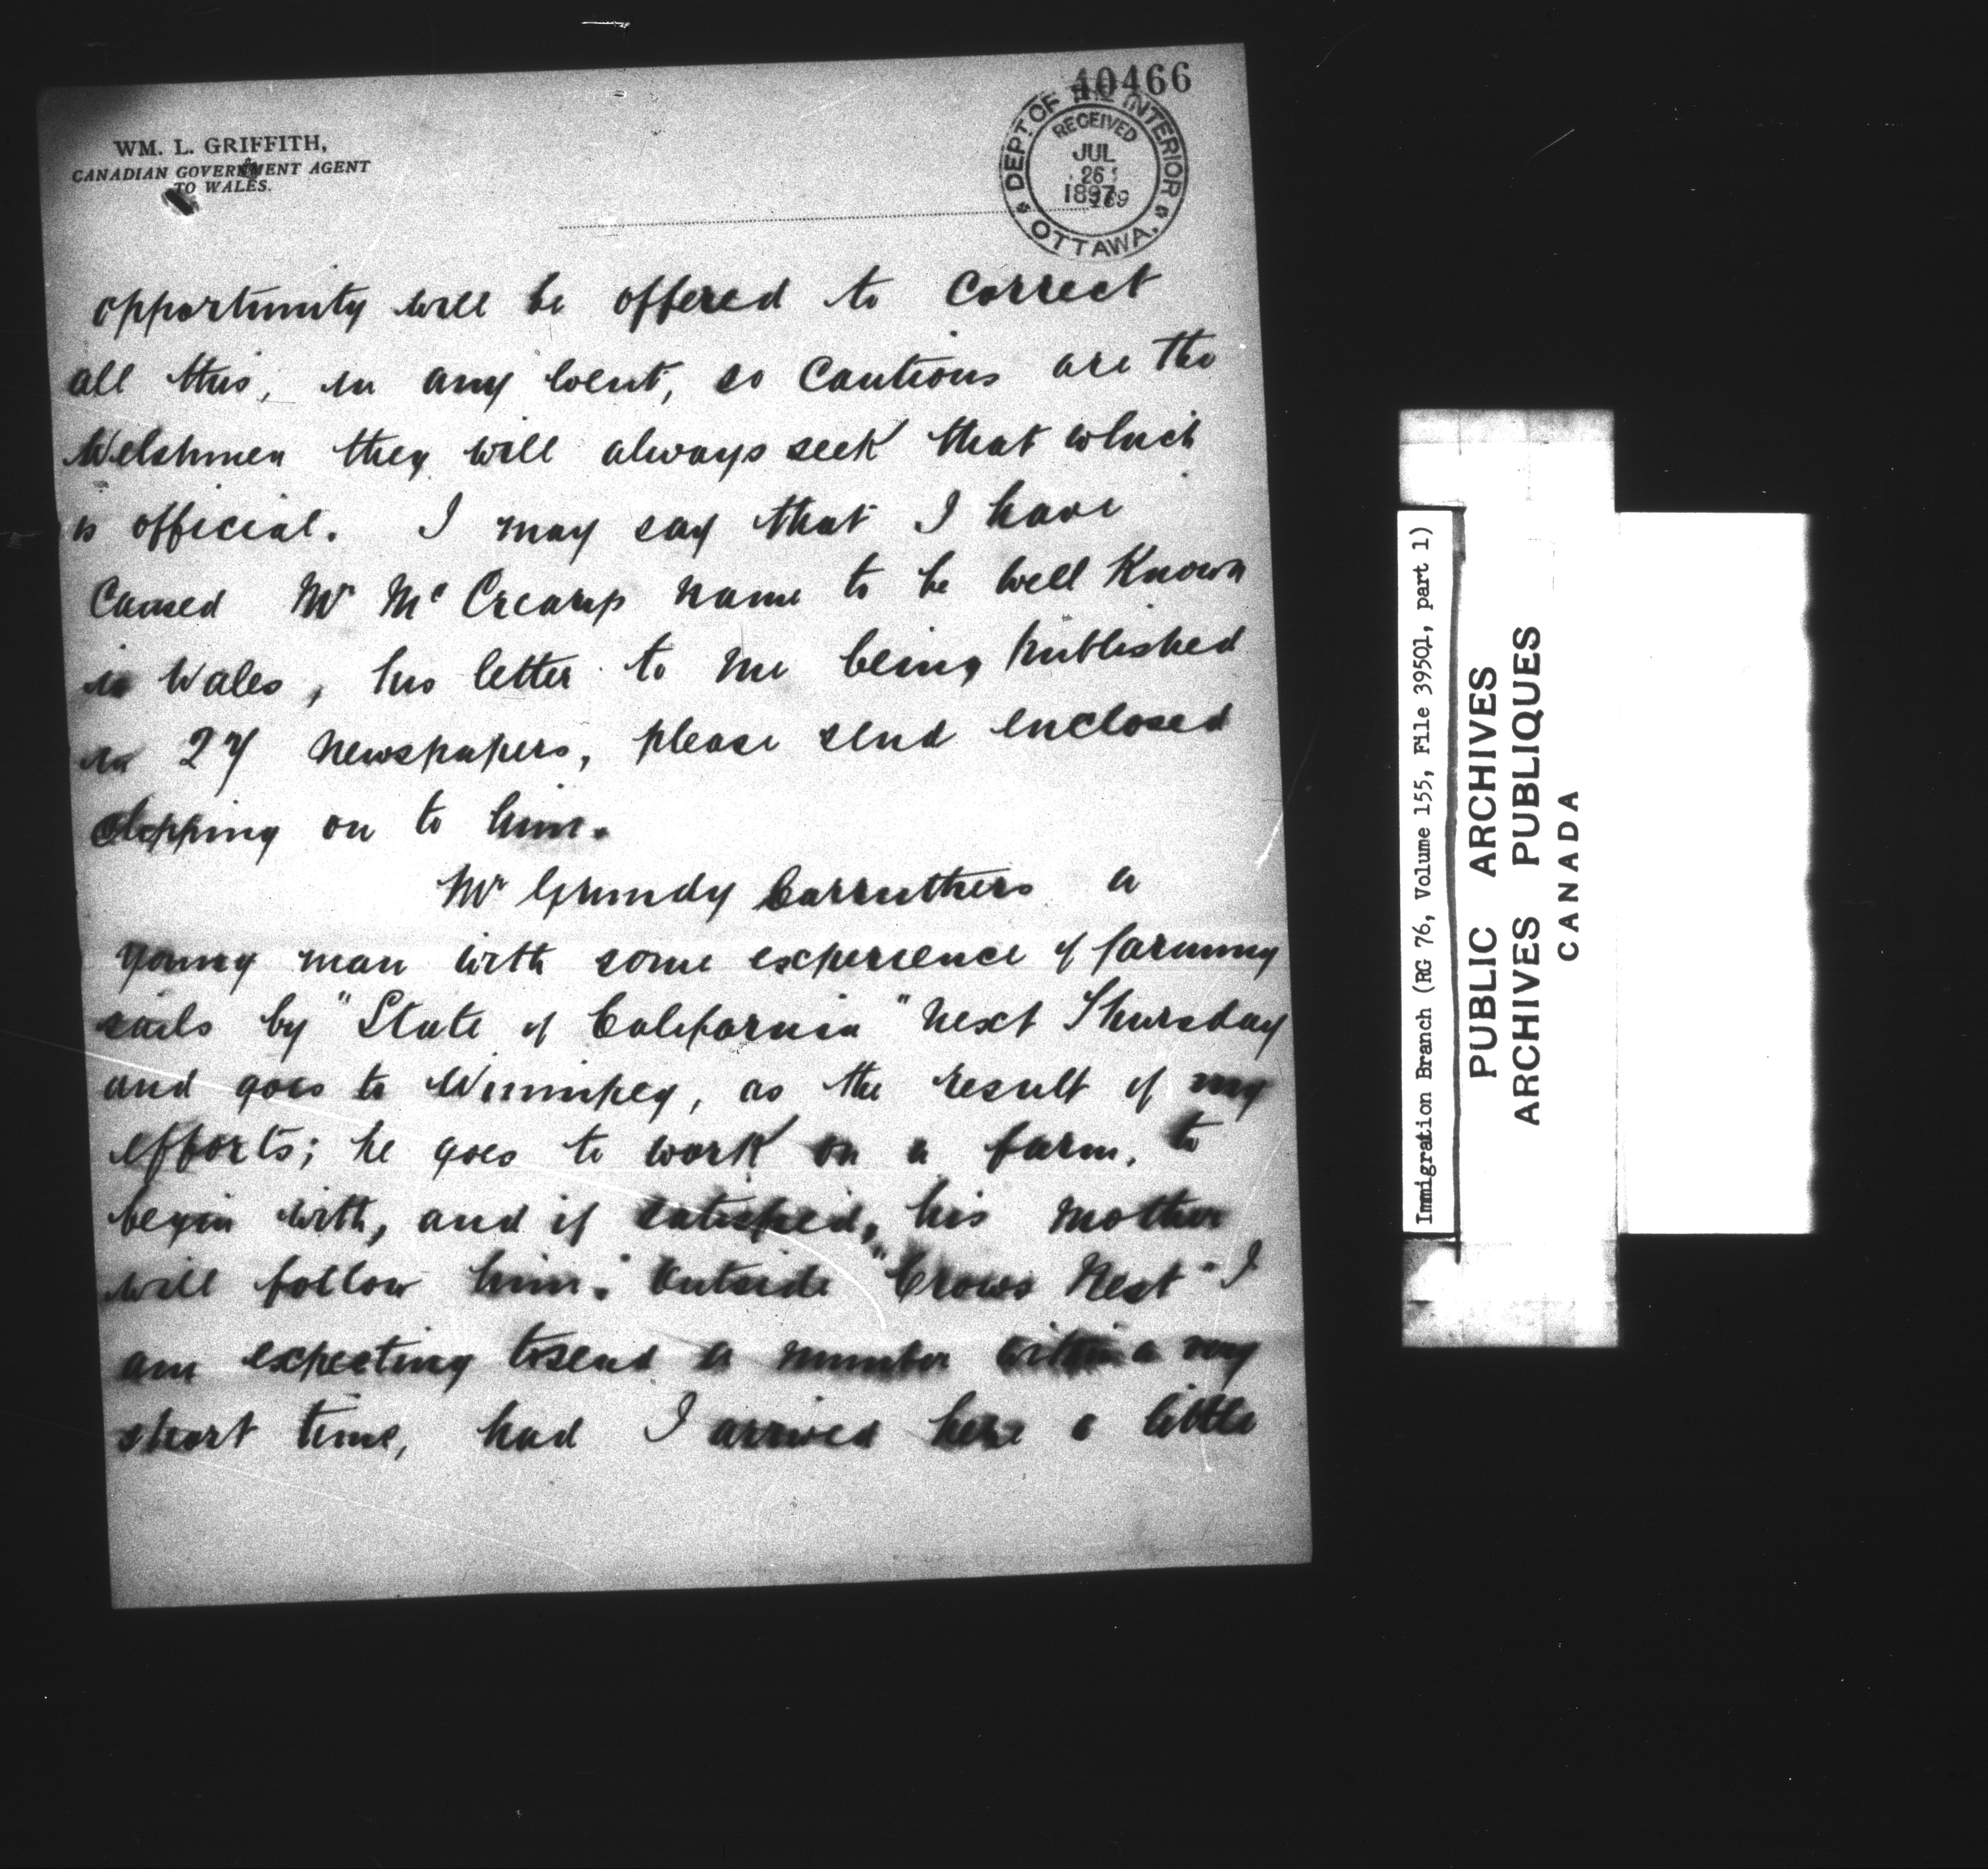 40466
WM. L. GRIFFITH,
CANADIAN GOVERNMENT AGENT
TO WALES.
DEPT OF THE INTERIOR
RECEIVED
JUL
26
1897
OTTAWA.
opportunity will be offered to correct
all this, in any event, so cautious are the
Welshmen they will always seek that which
is official. I may say that I have
caused Mr McCreary name to be well known
in Wales, his letter to me being published
in 27 newspapers, please send enclosed
clipping on to him.
Mr Grundy Carruthers a
young man with some experience of farming
sails by "State of California" next Thursday
and goes to Winnipeg, as the result of my
efforts; he goes to work on a farm, to
begin with, and if satisfied, his mother
will follow him. Outside "Crows Nest" I
am expecting to send a number within a very
short time, had I arrived here a little
Immigration Branch (RG 76, Volume 155, File 39501, part 1)
PUBLIC ARCHIVES
ARCHIVES PUBLIQUES
CANADA